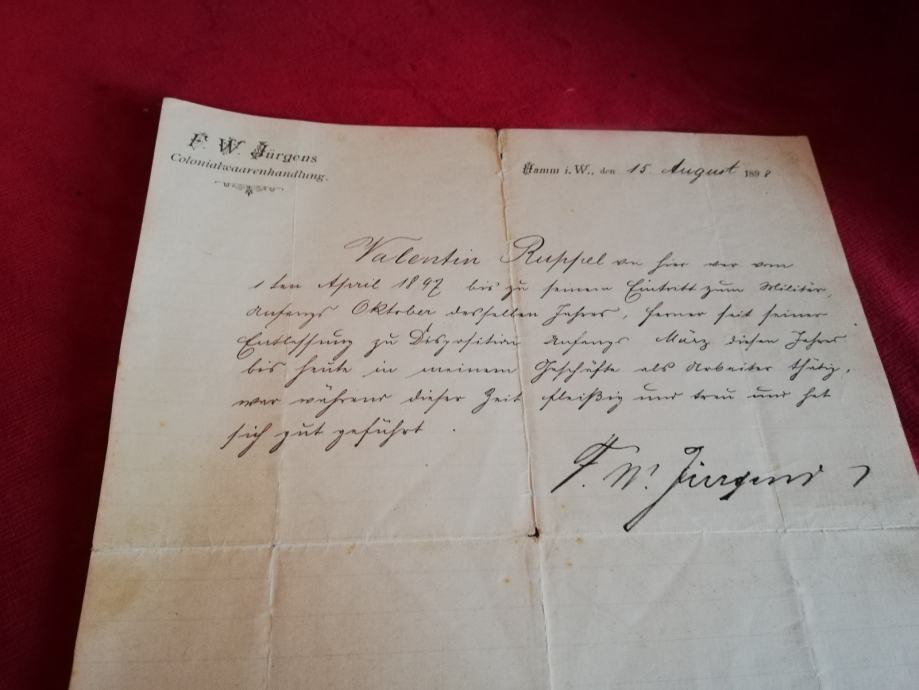 F. W. Jürgens
Colonialwaarenhandlung.
Hamm i. W., den 15. August 1898
Valentin Ruppel von hier war vom
1ten April 1897 bis zu seinem Eintritt zum Militär,
Anfangs Oktober desselben Jahres, ferner seit seiner
Entlassung zu Disposition Anfangs März diesen Jahres
bis heute in meinem Geschäfte als Arbeiter thätig,
war während dieser Zeit fleißig und treu und hat
sich gut geführt.
F. W. Jürgens